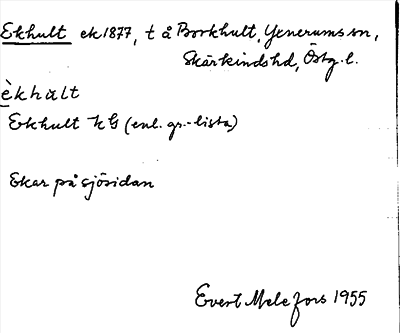 Ekhult ek 1877, t å Borkhult, Yxnerums sn,
Skärkinds hd, Östg. l.
èkhult
Ekhult KG (enl. gs.-lista)
Ekar på sjösidan
Evert Melefors 1955